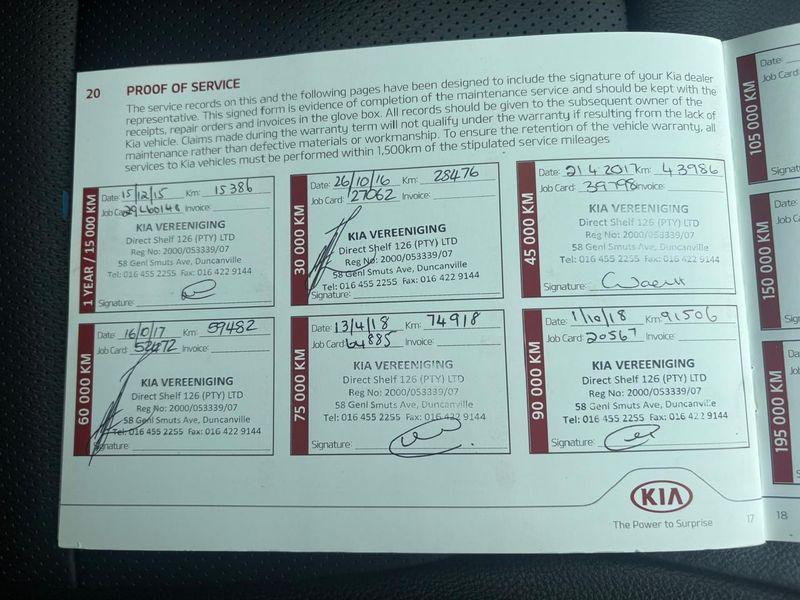 20 PROOF OF SERVICE
The service records on this and the following pages have been designed to include the signature of your Kia dealer
representative. This signed form is evidence of completion of the maintenance service and should be kept with the
receipts, repair orders and invoices in the glove box. All records should be given to the subsequent owner of the
Kia vehicle. Claims made during the warranty term will not qualify under the warranty if resulting from the lack of
maintenance rather than defective materials or workmanship. To ensure the retention of the vehicle warranty, all
services to Kia vehicles must be performed within 1,500km of the stipulated service mileages
1 YEAR / 15 000 KM
Date: 15/12/15 Km: 15386
Job Card: Invoice:
KIA VEREENIGING
Direct Shelf 126 (PTY) LTD
Reg No: 2000/053339/07
58 Genl Smuts Ave, Duncanville
Tel: 016 455 2255 Fax: 016 422 9144
Signature:
30 000 KM
Date: 26/10/16 Km: 28476
Job Card: 27062 Invoice:
KIA VEREENIGING
Direct Shelf 126 (PTY) LTD
Reg No: 2000/053339/07
58 Genl Smuts Ave, Duncanville
Tel: 016 455 2255 Fax: 016 422 9144
Signature:
45 000 KM
Date: 21 4 2017 Km: 43986
Job Card: 39798 Invoice:
KIA VEREENIGING
Direct Shelf 126 (PTY) LTD
Reg No: 2000/053339/07
58 Genl Smuts Ave, Duncanville
Tel: 016 455 2255 Fax: 016 422 9144
Signature:
60 000 KM
Date: 16/0/17 Km: 59482
Job Card: 52472 Invoice:
KIA VEREENIGING
Direct Shelf 126 (PTY) LTD
Reg No: 2000/053339/07
58 Genl Smuts Ave, Duncanville
Tel: 016 455 2255 Fax: 016 422 9144
Signature:
75 000 KM
Date: 13/4/18 Km: 74918
Job Card: 64885 Invoice:
KIA VEREENIGING
Direct Shelf 126 (PTY) LTD
Reg No: 2000/053339/07
58 Genl Smuts Ave, Duncanville
Tel: 016 455 2255 Fax: 016 422 9144
Signature:
90 000 KM
Date: 1/10/18 Km: 91506
Job Card: 20567 Invoice:
KIA VEREENIGING
Direct Shelf 126 (PTY) LTD
Reg No: 2000/053339/07
58 Genl Smuts Ave, Duncanville
Tel: 016 455 2255 Fax: 016 422 9144
Signature:
KIA
The Power to Surprise
17
105 000 KM
Date:
Job Card:
Signat
150 000 KM
Date:
Job Card
Sig
195 000 KM
Da
Jo
S
18